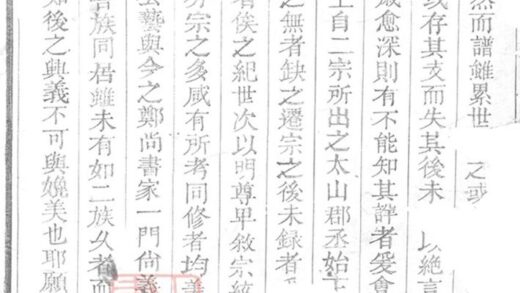 然而譜雖累世 之或
或存其支而失其後未 以絕言
歲愈深則有不能知其詳者爰會
上自二宗所出之太山郡丞始
之無者缺之遷宗之後未録者
者俟之紀世次以明尊卑敘宗統
宗之多咸有所考同修者均善
公藝與今之鄭尚書家一門尚義
族同居雖未有如二族久者而
知後之興義不可與媲美也耶願